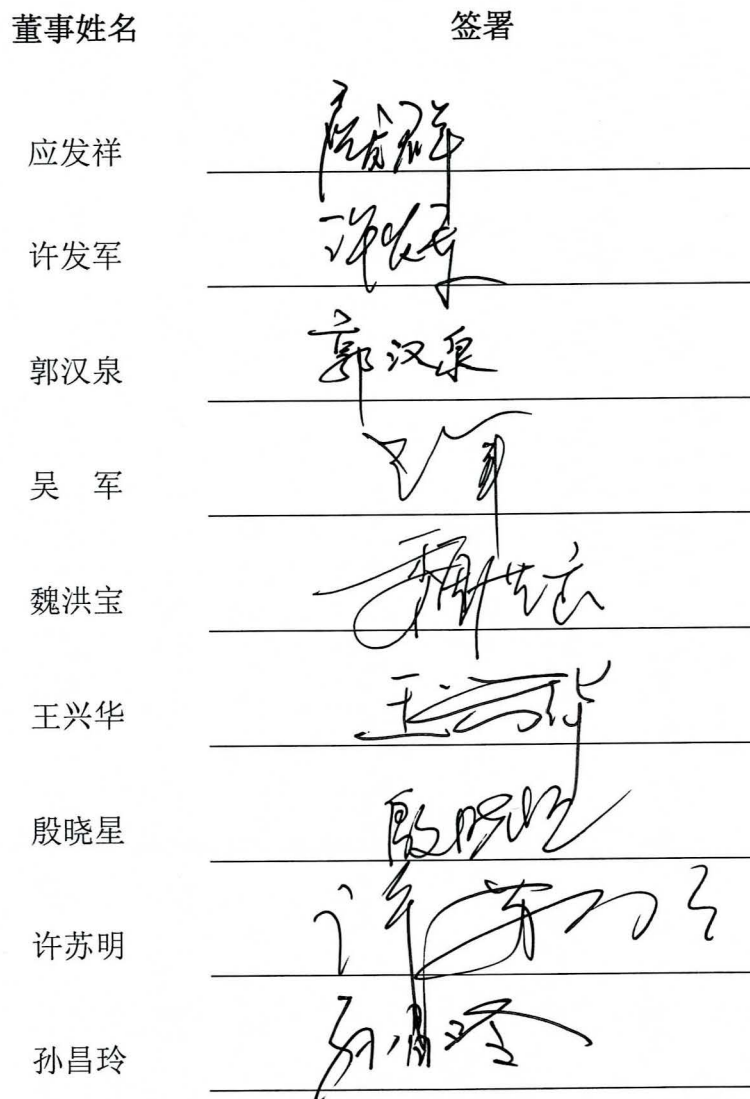 董事姓名 签署
应发祥 应发祥
许发军 许发军
郭汉泉 郭汉泉
吴 军 吴军
魏洪宝 魏洪宝
王兴华 王兴华
殷晓星 殷晓星
许苏明 许苏明
孙昌玲 孙昌玲